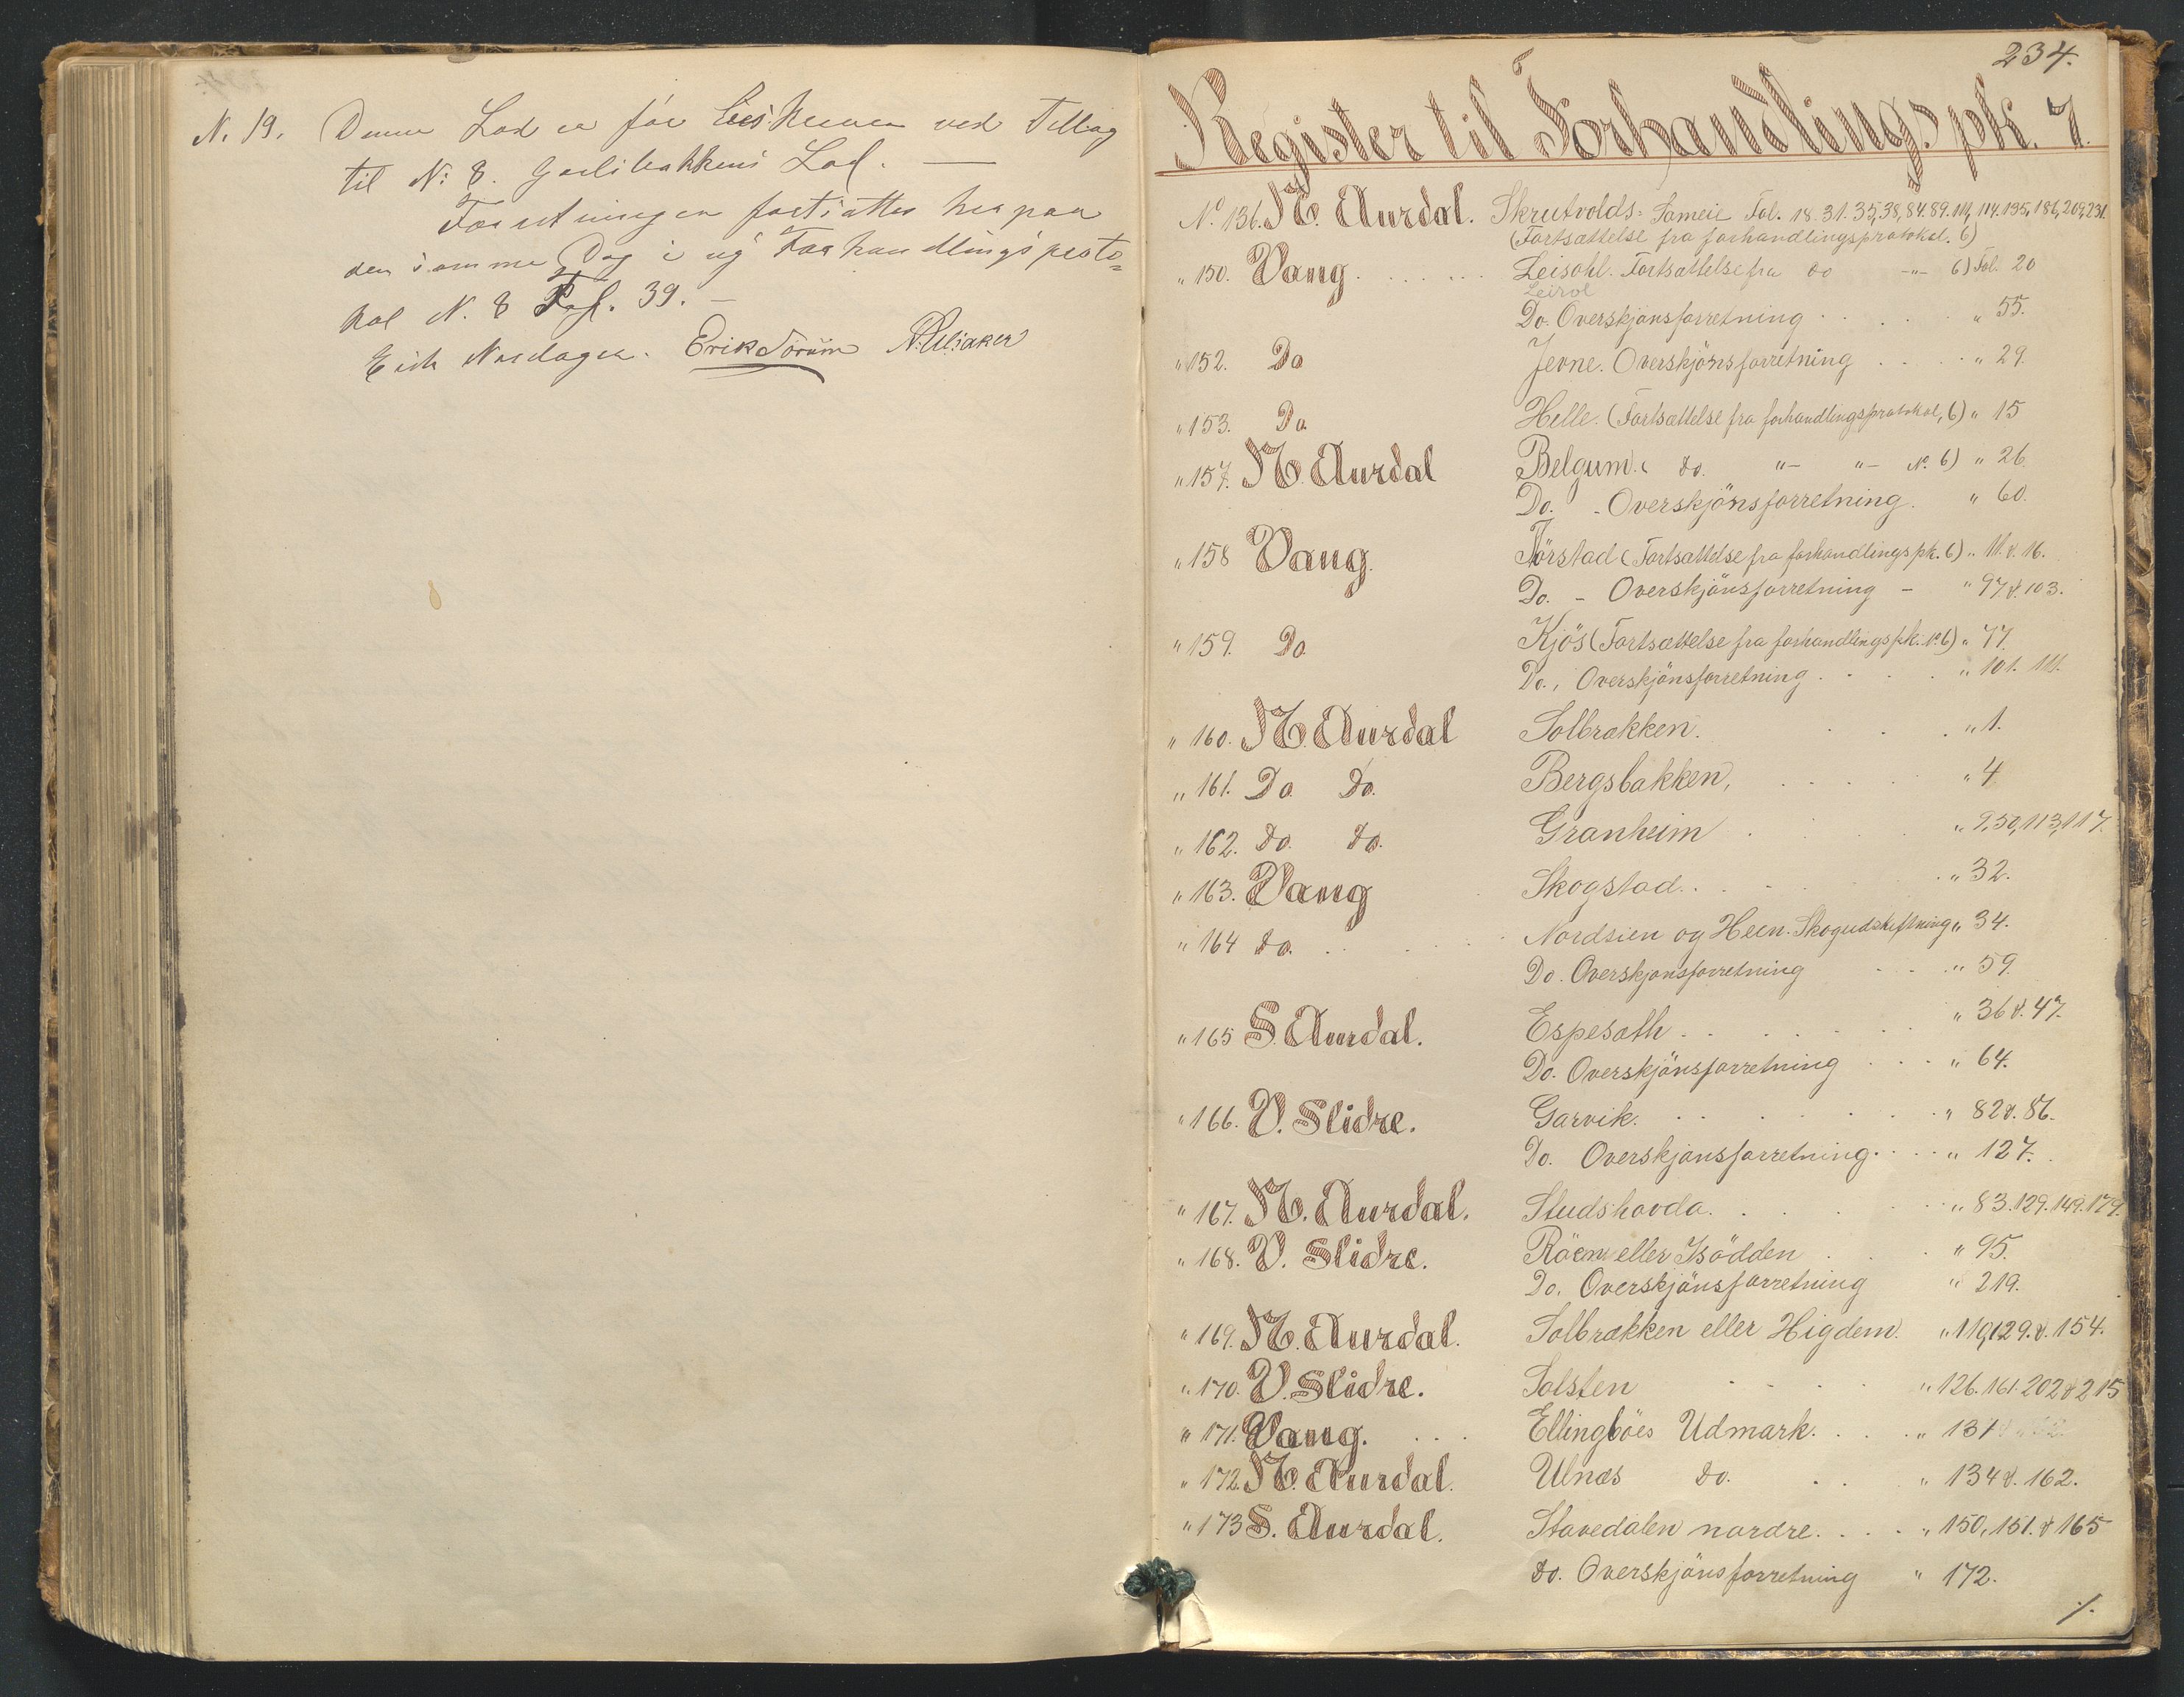 N. 19. Denne Lod er før ved Tillæg
til N: 8. Lod. —
Forretningen fortsættes herpaa
den samme Dag i ny Forhandlingsproto=
kol N. 8 Fol. 39. —
Erik Sørum
234.
Register til Forhandlings.pk. 7.
No. 136. N. Aurdal. Skrutvolds-Sameie Fol. 18. 31. 35, 38, 84. 89. 111, 114. 135, 186, 209, 231.
(Fortsættelse fra forhandlingsprotokol. 6)
" 150. Vang . . . . . Leisohl. Fortsættelse fra do -"- 6) Fol. 20
Leirol
Do. Overskjönsforretning . . . . " 55.
" 152. Do Jevne. Overskjönsforretning . . . . " 29.
" 153. Do. Helle. (Fortsættelse fra forhandlingsprotokol, 6) " 15
" 157. N. Aurdal Belgum. ( do. "- "- N. 6) " 26
Do. - Overskjönsforretning. " 60.
" 158 Vang. Törstad (Fortsættelse fra forhandlingspk. 6) " 11. & 16.
Do. - Overskjönsforretning - " 97 & 103.
" 159. Do. Kjös (Fortsættelse fra forhandlingspk. N. 6) " 77.
Do., Overskjönsforretning . . . . " 101. 111.
" 160. N. Aurdal Solbrækken. . . . " 1.
" 161. Do. Do. Bergsbakken, . . . . " 4
" 162. do. do. Granheim . . . " 9, 50, 113, 117.
" 163. Vang Skogstad. . . . . " 32.
" 164 do. . . . Nordsien og Heen. Skogudskiftning " 34.
Do. Overskjønsforretning . . . " 59.
" 165 S. Aurdal. Espesæth . . . . . " 36 & 47.
Do. Overskjönsforretning . . . " 64.
" 166. V. Slidre. Garvik. . . . . . " 82 & 86.
Do. Overskjønsforretning . . . . " 127.
" 167. N. Aurdal. Studshovda. . . . . " 83. 129. 149. 179.
" 168. V. Slidre. Röen eller Isödden . . . " 95.
Do. Overskjönsforretning " 219.
" 169. N. Aurdal. Solbrækken eller Higdem. " 119, 129. & 154.
" 170. V. Slidre. Solsten . . . . " 126. 161. 202 & 215
" 171. Vang. . . . Ellingböes Udmark. . . . " 131
" 172. N. Aurdal. Ulnæs do. . . " 134 & 162.
" 173 S. Aurdal. Stavedalen nordre. . . . " 150, 151. & 165
do. Overskjönsforretning " 172.
/.